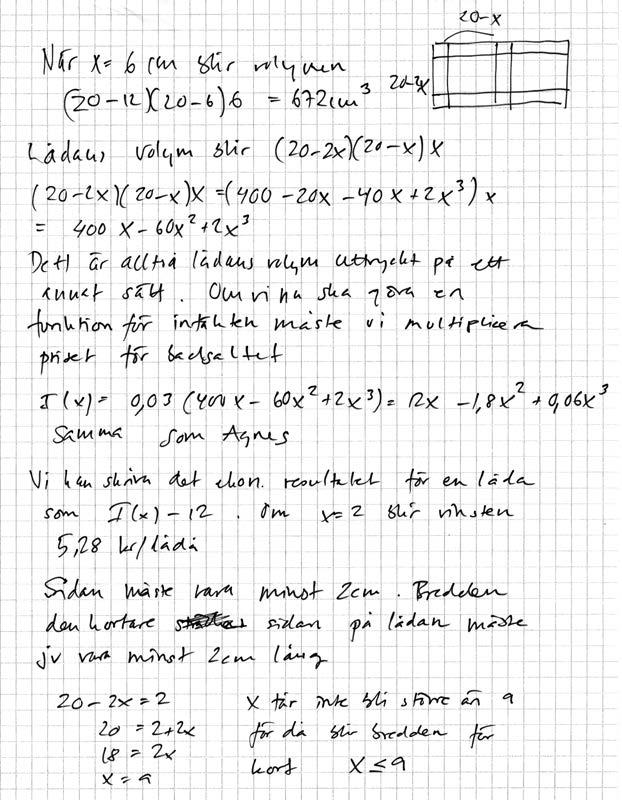 20-x
När x= 6 cm blir volymen
(20-12)(20-6)6 = 672cm³
20-2x
Lådans volym blir (20-2x)(20-x)x
(20-2x)(20-x)x =(400-20x-40x+2x³)x
= 400x-60x²+2x³
Det är alltså lådans volym uttryckt på ett
annat sätt. Om vi nu ska göra en
funktion för intäkten måste vi multiplicera
priset för badsaltet
I(x)= 0,03(400x-60x²+2x³)= 12x -1,8x²+0,06x³
Samma som Agnes
Vi kan skriva det ekon. resultatet för en låda
som I(x)-12. Om x=2 blir vinsten
5,28 kr/låda
Sidan måste vara minst 2cm. Bredden
den kortare sidan på lådan måste
ju vara minst 2cm lång
20-2x=2 x får inte bli större än 9
20 = 2+2x för då blir bredden för
18 = 2x kort x≤9
x = 9